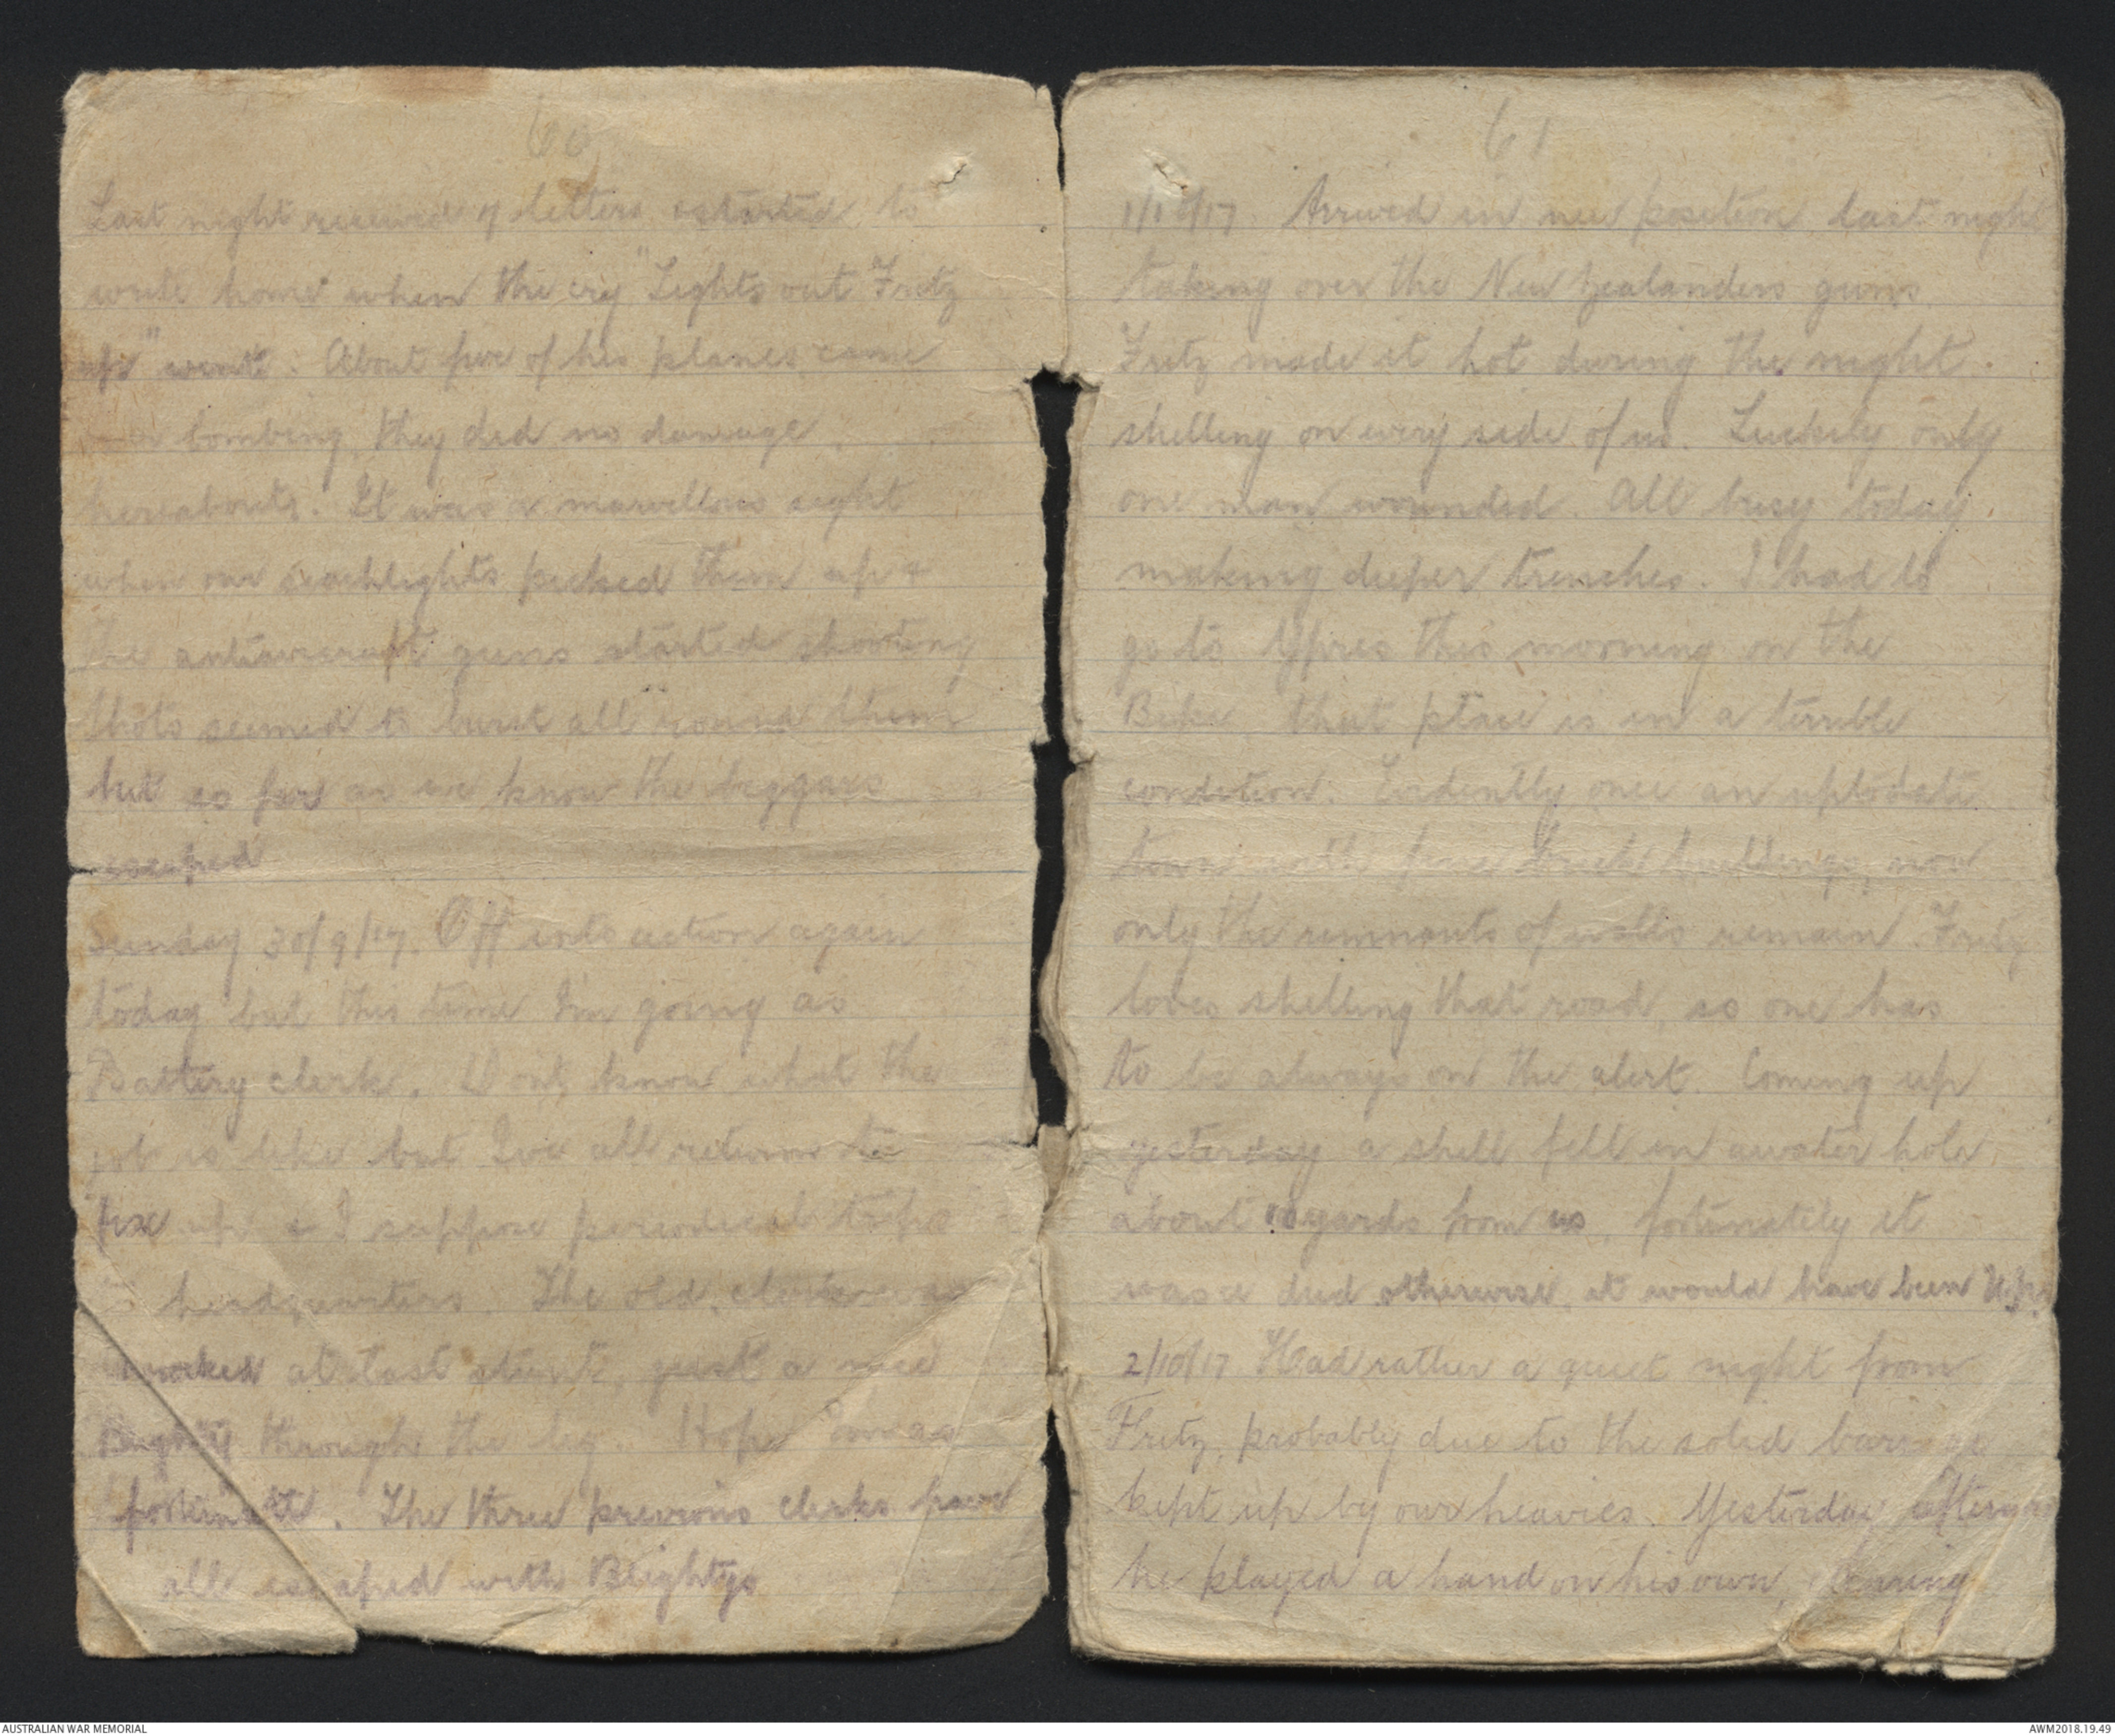 60
Last night received 4 letters & started to
write home when the cry "Lights out Fritz
up" went. About five of his planes came
over bombing, they did no damage
hereabouts. It was a marvellous sight
when our seachlights picked them up &
the antiaircraft guns started shooting
shots seemed to burst all round them
but as far as we know the beggars
escaped
Sunday 30/9/17. Off into action again
today but this time Im going as
Battery clerk. Dont know what the
job is like but Ive all returns to
fix up & I suppose periodical trips
to headquarters. The old clerk was
knocked at last stunt, just a nice
Blighty through the leg. Hope Im as
fortunate. The three previous clerks have
all escaped with Blightys
61
1/10/17. Arrived in new position last night
taking over the New Zealanders guns
Fritz made it hot during the night.
shelling on every side of us. Luckily only
one man wounded. All busy today
making deeper trenches. I had to
go to Ypres this morning on the
Bike that place is in a terrible
condition. Evidently once an uptodate
town with fine brick buildings, now
only the remnants of walls remain. Fritz
loves shelling that road, so one has
to be always on the alert. Coming up
yesterday a shell fell in a water hole
about 10 yards from us, fortunately it
was a dud otherwise it would have been
2/10/17 Had rather a quiet night from
Fritz, probably due to the solid barrage
kept up by our heavies. Yesterday afternn
he played a hand on his own,
AUSTRALIAN WAR MEMORIAL
AWM2018.19.49